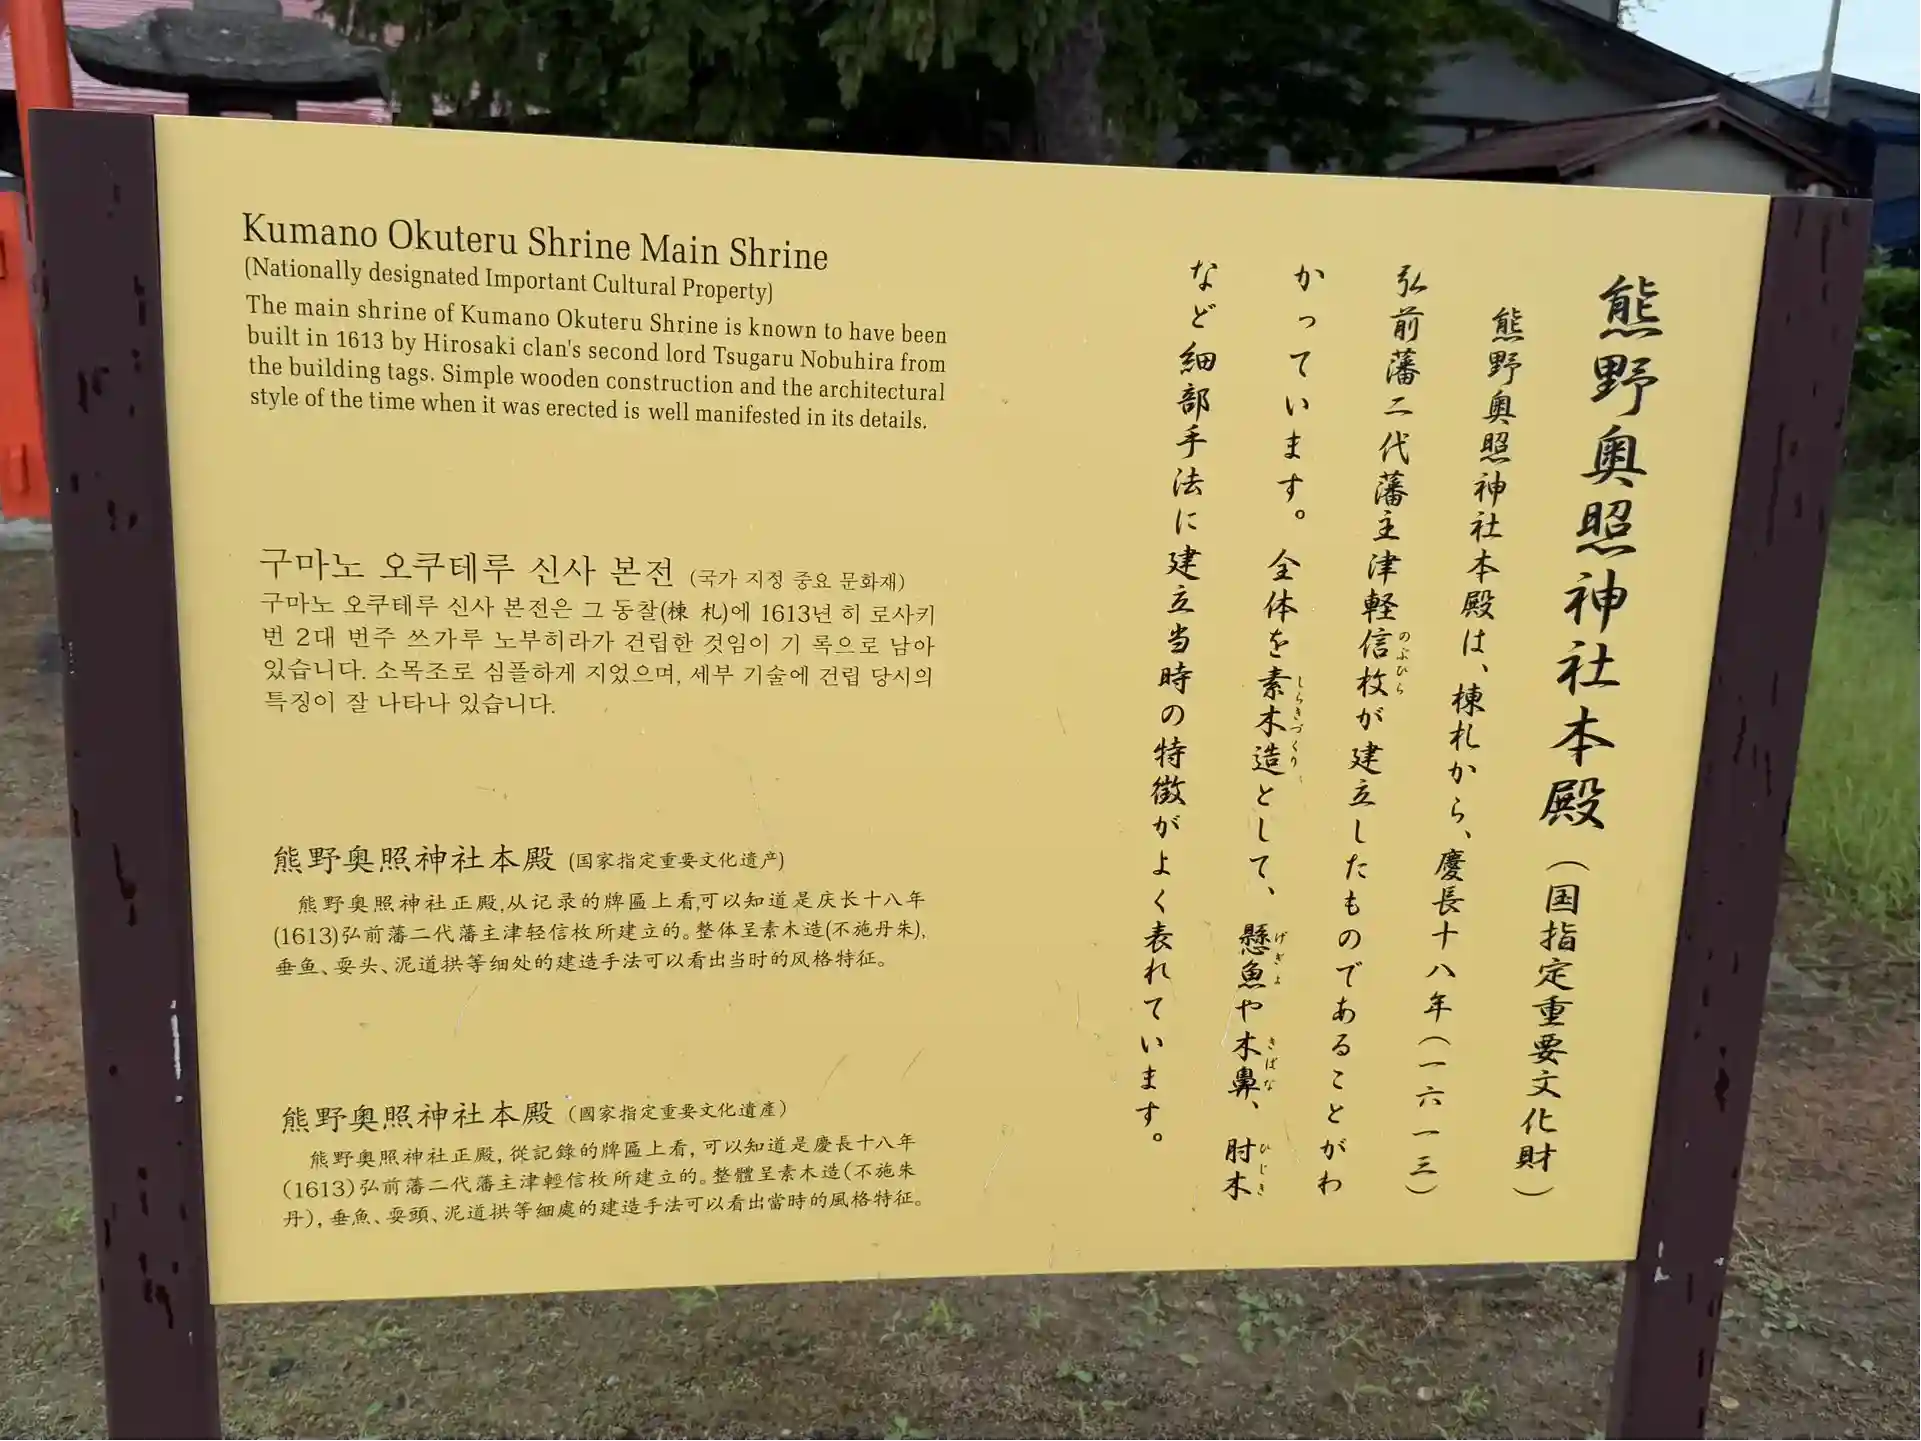 Kumano Okuteru Shrine Main Shrine
(Nationally designated Important Cultural Property)
The main shrine of Kumano Okuteru Shrine is known to have been
built in 1613 by Hirosaki clan's second lord Tsugaru Nobuhira from
the building tags. Simple wooden construction and the architectural
style of the time when it was erected is well manifested in its details.
구마노 오쿠테루 신사 본전 (국가 지정 중요 문화재)
구마노 오쿠테루 신사 본전은 그 동찰(棟 札)에 1613년 히 로사키
번 2대 번주 쓰가루 노부히라가 건립한 것임이 기 록으로 남아
있습니다. 소목조로 심플하게 지었으며, 세부 기술에 건립 당시의
특징이 잘 나타나 있습니다.
熊野奥照神社本殿 (国家指定重要文化遗产)
熊野奥照神社正殿,从记录的牌匾上看,可以知道是庆长十八年
(1613)弘前藩二代藩主津轻信枚所建立的。整体呈素木造(不施丹朱),
垂鱼、耍头、泥道拱等细处的建造手法可以看出当时的风格特征。
熊野奥照神社本殿 (國家指定重要文化遺產)
熊野奥照神社正殿, 從記錄的牌匾上看, 可以知道是慶長十八年
(1613) 弘前藩二代藩主津輕信枚所建立的。整體呈素木造(不施朱
丹), 垂魚、耍頭、泥道拱等細處的建造手法可以看出當時的風格特征。
熊野奥照神社本殿（国指定重要文化財）
熊野奥照神社本殿は、棟札から、慶長十八年（一六一三）
弘前藩二代藩主津軽信枚が建立したものであることがわ
のぶひら
かっています。全体を素木造として、懸魚や木鼻、肘木
しらきづくり
げぎょ
きばな
ひじき
など細部手法に建立当時の特徴がよく表れています。